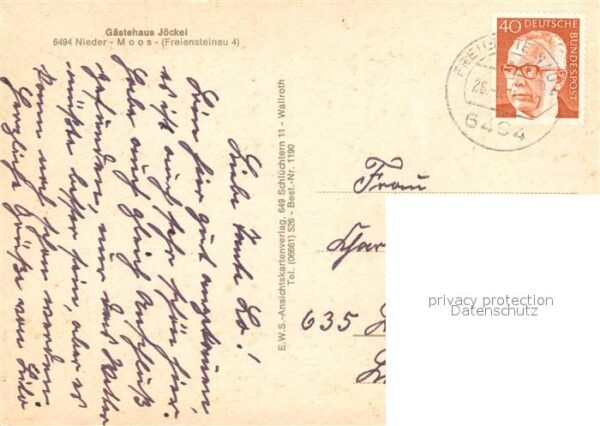 Gästehaus Jöckel
6494 Nieder - M o o s - (Freiensteinau 4)
Liebe Tante Lo!
Bin hier gut angekommen
es ist auch sehr schön hier.
Habe auch gleich Anschluß
gefunden, nur das Wetter
müßte besser sein, aber es
kann noch schön werden
Herzliche Grüße von Lilo
E.W.S.-Ansichtskartenverlag, 649 Schlüchtern 11 - Wallroth
Tel. (06661) 526 - Best.-Nr. 1190
40 DEUTSCHE BUNDESPOST
26.
6494
Frau
635
privacy protection
Datenschutz